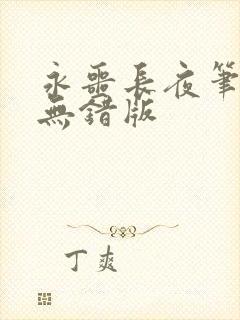 永噩長夜筆
無錯版
丁爽